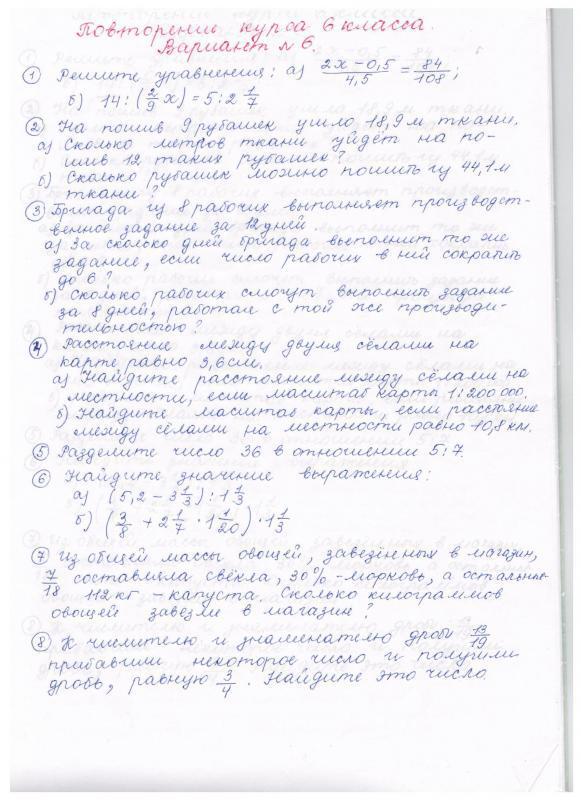 Повторение курса 6 класса.
Вариант №6.
① Решите уравнения: а) (2x-0,5)/4,5 = 84/108;
б) 14:(2/9 x)=5:2 1/7
② На пошив 9 рубашек ушло 18,9 м ткани.
а) Сколько метров ткани уйдёт на по-
шив 12 таких рубашек?
б) Сколько рубашек можно пошить из 44,1 м
ткани?
③ Бригада из 8 рабочих выполняет производст-
венное задание за 12 дней.
а) За сколько дней бригада выполнит то же
задание, если число рабочих в ней сократить
до 6?
б) Сколько рабочих смогут выполнить задание
за 8 дней, работая с той же производи-
тельностью?
④ Расстояние между двумя сёлами на
карте равно 3,6 см.
а) Найдите расстояние между сёлами на
местности, если масштаб карты 1:200 000.
б) Найдите масштаб карты, если расстояние
между сёлами на местности равно 10,8 км.
⑤ Разделите число 36 в отношении 5:7.
⑥ Найдите значение выражения:
а) (5,2-3 1/3):1 1/3
б) (3/8 + 2 1/7 · 1 1/20) · 1 1/3
⑦ Из общей массы овощей, завезённых в магазин,
7/18 составляла свёкла, 30% - морковь, а остальные
112 кг - капуста. Сколько килограммов
овощей завезли в магазин?
⑧ К числителю и знаменателю дроби 13/19
прибавили некоторое число и получили
дробь, равную 3/4. Найдите это число.